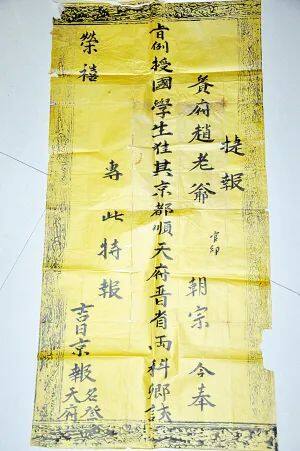 捷報
貴府趙老爺官印朝宗今奉
旨例授國學生在其京都順天府晋省两科鄉試
榮禧
專此特報
吉日京報
天府